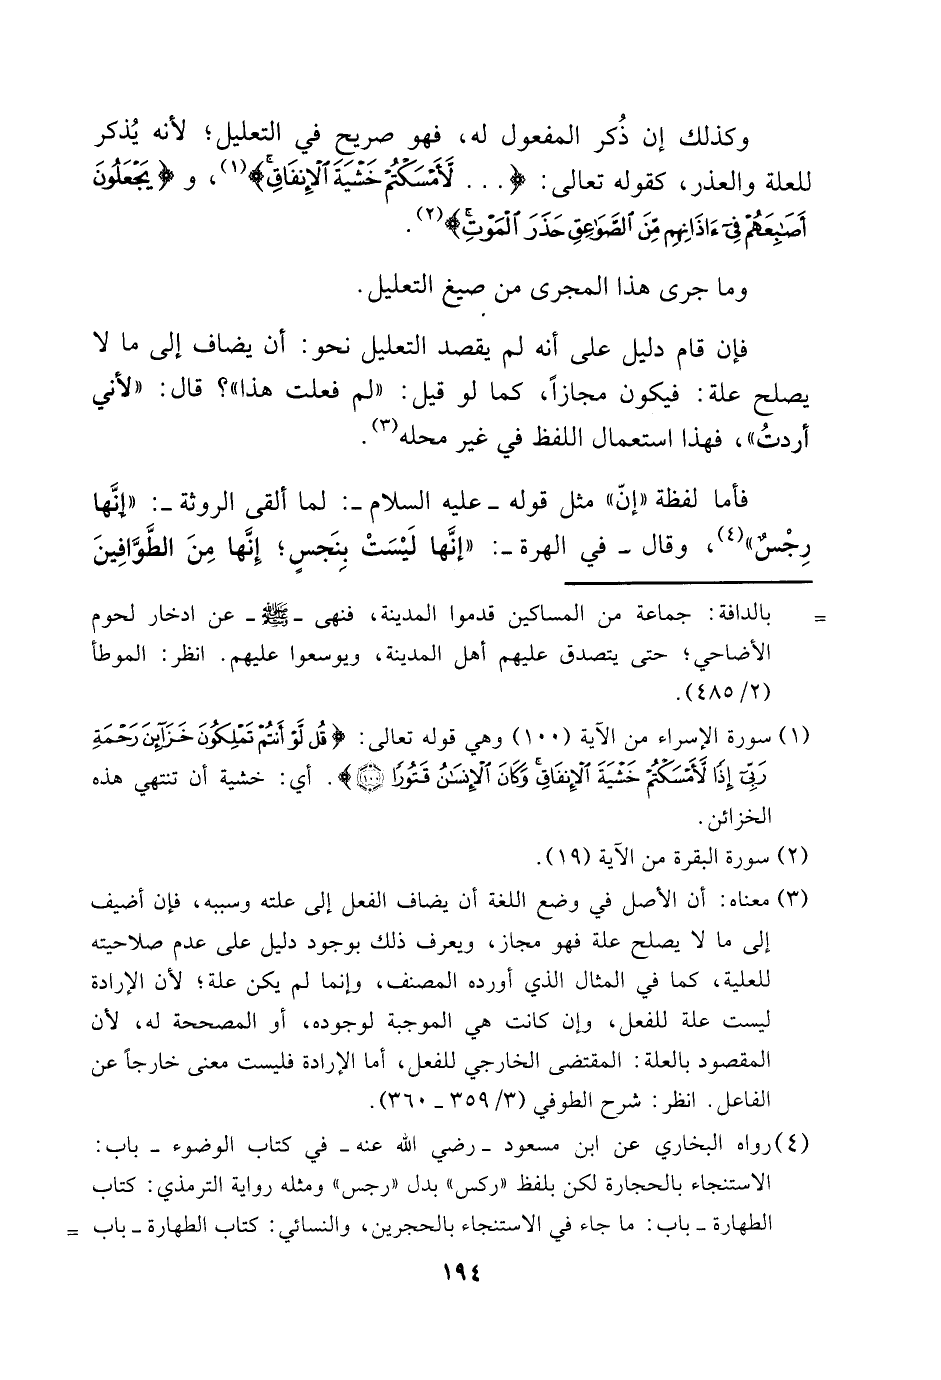 وكذلك إن ذُكر المفعول له، فهو صريح في التعليل؛ لأنه يُذكر
للعلة والعذر، كقوله تعالى: ﴿... لَّأَمْسَكْتُمْ خَشْيَةَ ٱلْإِنفَاقِۚ﴾(١)، و ﴿يَجْعَلُونَ
أَصَٰبِعَهُمْ فِىٓ ءَاذَانِهِم مِّنَ ٱلصَّوَٰعِقِ حَذَرَ ٱلْمَوْتِۚ﴾(٢).
وما جرى هذا المجرى من صيغ التعليل.
فإن قام دليل على أنه لم يقصد التعليل نحو: أن يضاف إلى ما لا
يصلح علة: فيكون مجازاً، كما لو قيل: «لم فعلت هذا»؟ قال: «لأني
أردتُ»، فهذا استعمال اللفظ في غير محله(٣).
فأما لفظة «إنّ» مثل قوله ـ عليه السلام ـ: لما ألقى الروثة ـ: «إنَّها
رِجْسٌ»(٤)، وقال ـ في الهرة ـ: «إنَّها لَيْسَتْ بِنَجسٍ؛ إنَّها مِنَ الطَّوَّافِينَ
= بالدافة: جماعة من المساكين قدموا المدينة، فنهى ـ ﷺ ـ عن ادخار لحوم
الأضاحي؛ حتى يتصدق عليهم أهل المدينة، ويوسعوا عليهم. انظر: الموطأ
(٢/ ٤٨٥).
(١) سورة الإسراء من الآية (١٠٠) وهي قوله تعالى: ﴿قُل لَّوْ أَنتُمْ تَمْلِكُونَ خَزَآئِنَ رَحْمَةِ
رَبِّىٓ إِذًا لَّأَمْسَكْتُمْ خَشْيَةَ ٱلْإِنفَاقِۚ وَكَانَ ٱلْإِنسَٰنُ قَتُورًا ۝١٠٠﴾. أي: خشية أن تنتهي هذه
الخزائن.
(٢) سورة البقرة من الآية (١٩).
(٣) معناه: أن الأصل في وضع اللغة أن يضاف الفعل إلى علته وسببه، فإن أضيف
إلى ما لا يصلح علة فهو مجاز، ويعرف ذلك بوجود دليل على عدم صلاحيته
للعلية، كما في المثال الذي أورده المصنف، وإنما لم يكن علة؛ لأن الإرادة
ليست علة للفعل، وإن كانت هي الموجبة لوجوده، أو المصححة له، لأن
المقصود بالعلة: المقتضى الخارجي للفعل، أما الإرادة فليست معنى خارجاً عن
الفاعل. انظر: شرح الطوفي (٣/ ٣٥٩ ـ ٣٦٠).
(٤) رواه البخاري عن ابن مسعود ـ رضي الله عنه ـ في كتاب الوضوء ـ باب:
الاستنجاء بالحجارة لكن بلفظ «ركس» بدل «رجس» ومثله رواية الترمذي: كتاب
الطهارة ـ باب: ما جاء في الاستنجاء بالحجرين، والنسائي: كتاب الطهارة ـ باب =
١٩٤